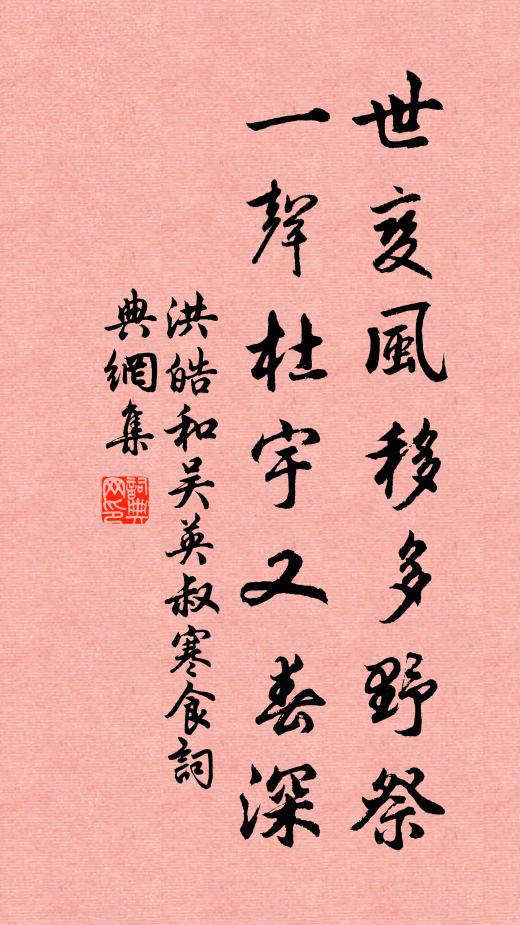 世变風移多野祭
一聲杜宇又春深
洪皓和吴英叔寒食詞
典網集
詞典网印